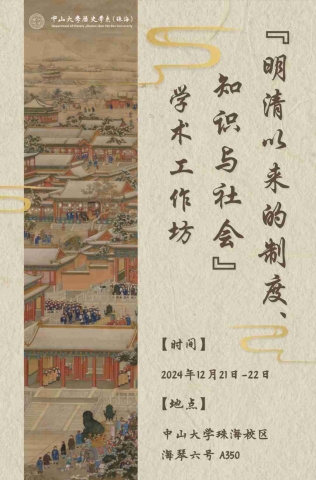 中山大学历史学系(珠海)
『明清以来的制度、
知识与社会』
学术工作坊
【时间】
2024年12月21日-22日
【地点】
中山大学珠海校区
海琴六号 A350